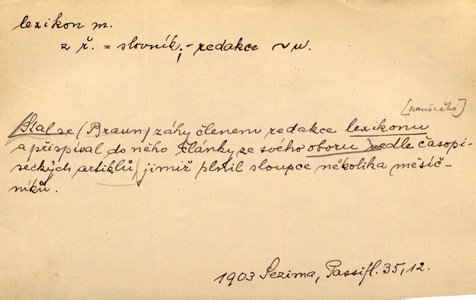 lexikon m.
z ř. = slovník; - redakce ~u.
[naučného]
Stal se (Braun) záhy členem redakce lexikonu
a přispíval do něho články ze svého oboru vedle časopi-
seckých artiklů, jimiž plnil sloupce několika měsíč-
níků.
1903 Sezima, Passifl. 35, 12.